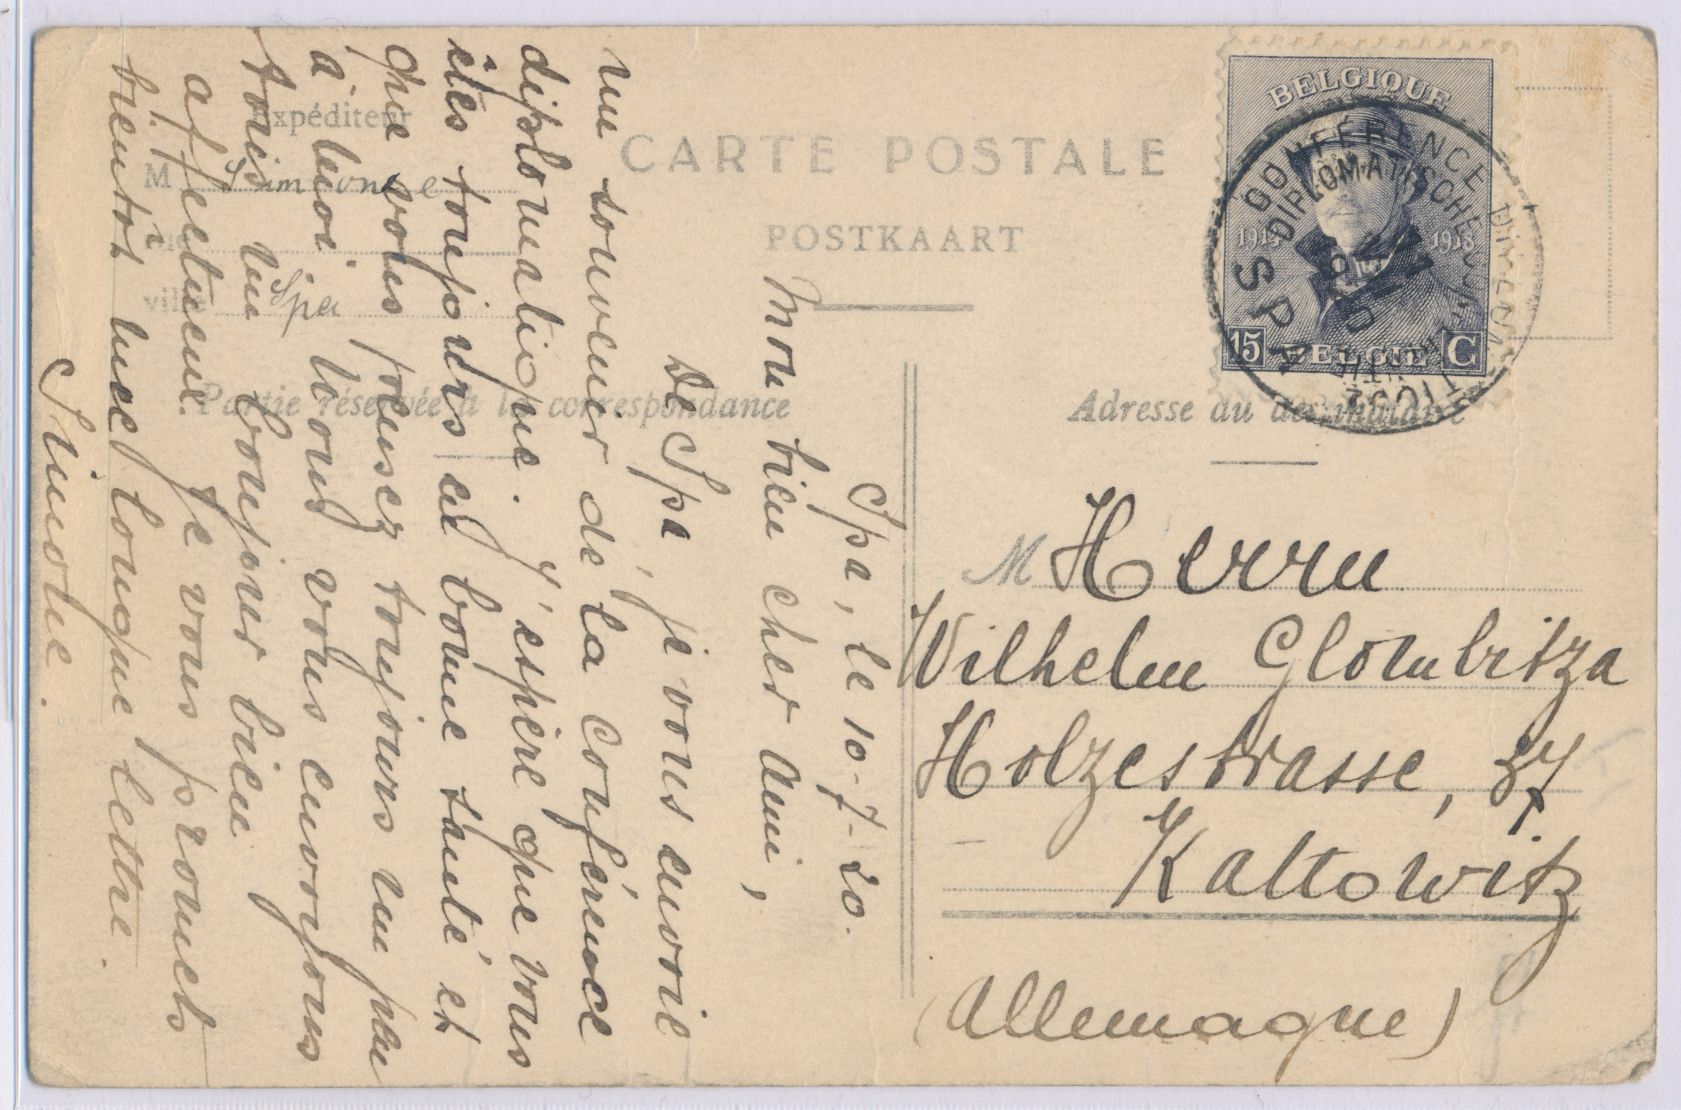 CARTE POSTALE
POSTKAART
Expéditeur
M Simonne
ville Spa
Partie réservée à la correspondance
Adresse du destinataire
BELGIQUE
1914 1918
15 BELGIE C
CONFÉRENCE DIPLOMATIQUE
DIPLOMATISCHE
SPA
Spa, le 10-7-20.
Mon bien cher Ami,
De Spa, je vous envoie
un souvenir de la Conférence
diplomatique. J'espère que vous
êtes toujours en bonne santé et
que vous pensez toujours un peu
à moi. Nous vous envoyons
tous un bonjour bien
affectueux. Je vous promets
bientôt une longue lettre.
Simone.
M Herrn
Wilhelm Glombitza
Holzestrasse, 37
Kattowitz
(Allemagne)